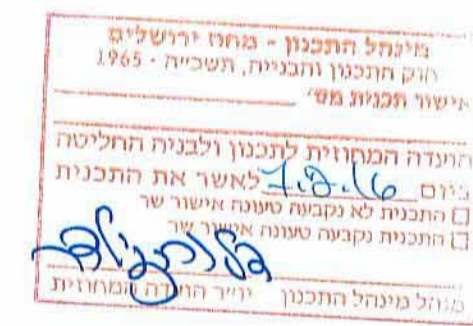 מינהל התכנון - מחוז ירושלים
חוק התכנון והבנייה, תשכ״ה - 1965
אישור תכנית מס׳
הועדה המחוזית לתכנון ולבניה החליטה
ביום 7.2.16 לאשר את התכנית
התכנית לא נקבעה טעונה אישור שר
התכנית נקבעה טעונה אישור שר
מנהל מינהל התכנון יו״ר הועדה המחוזית